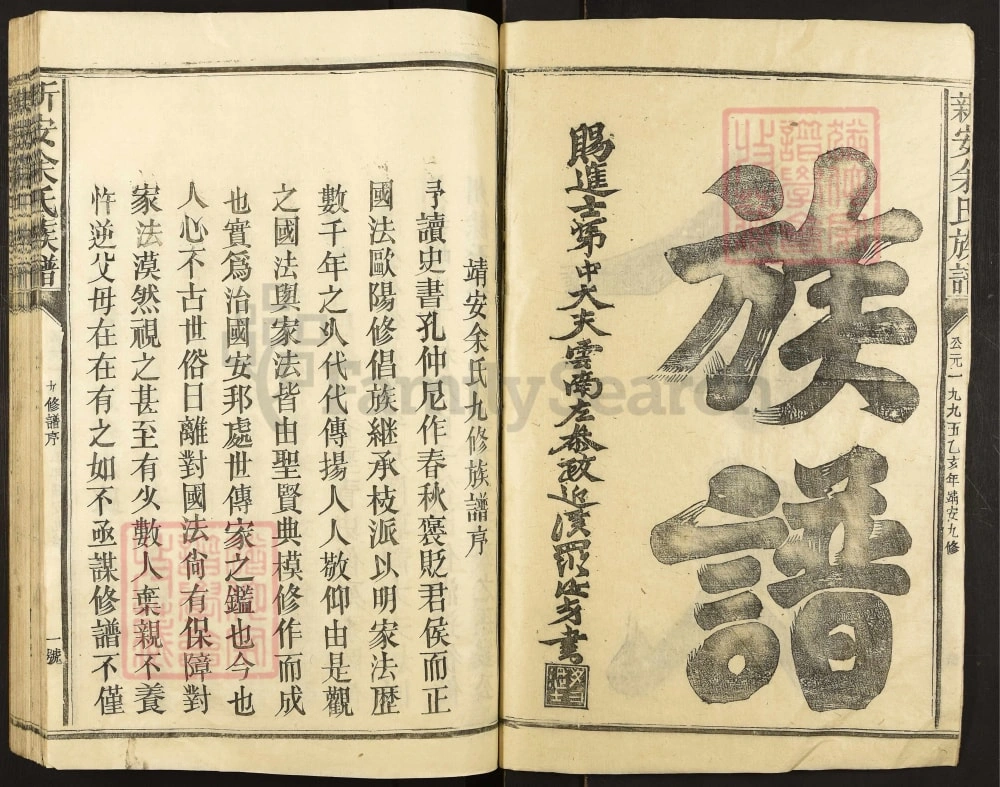 新安余氏族譜
公元一九九五乙亥年靖安九修
族譜
賜進士第中大夫雲南左參政近溪羅汝芳書
靖安余氏九修族譜序
予讀史書孔仲尼作春秋褒貶君侯而正
國法歐陽修倡族継承枝派以明家法歷
數千年之久代代傳揚人人敬仰由是觀
之國法與家法皆由聖賢典模修作而成
也實為治國安邦處世傳家之鑑也今也
人心不古世俗日離對國法尙有保障對
家法漠然視之甚至有少數人棄親不養
忤逆父母在在有之如不亟謀修譜不僅
新安余氏族譜
九修譜序
一號
FamilySearch